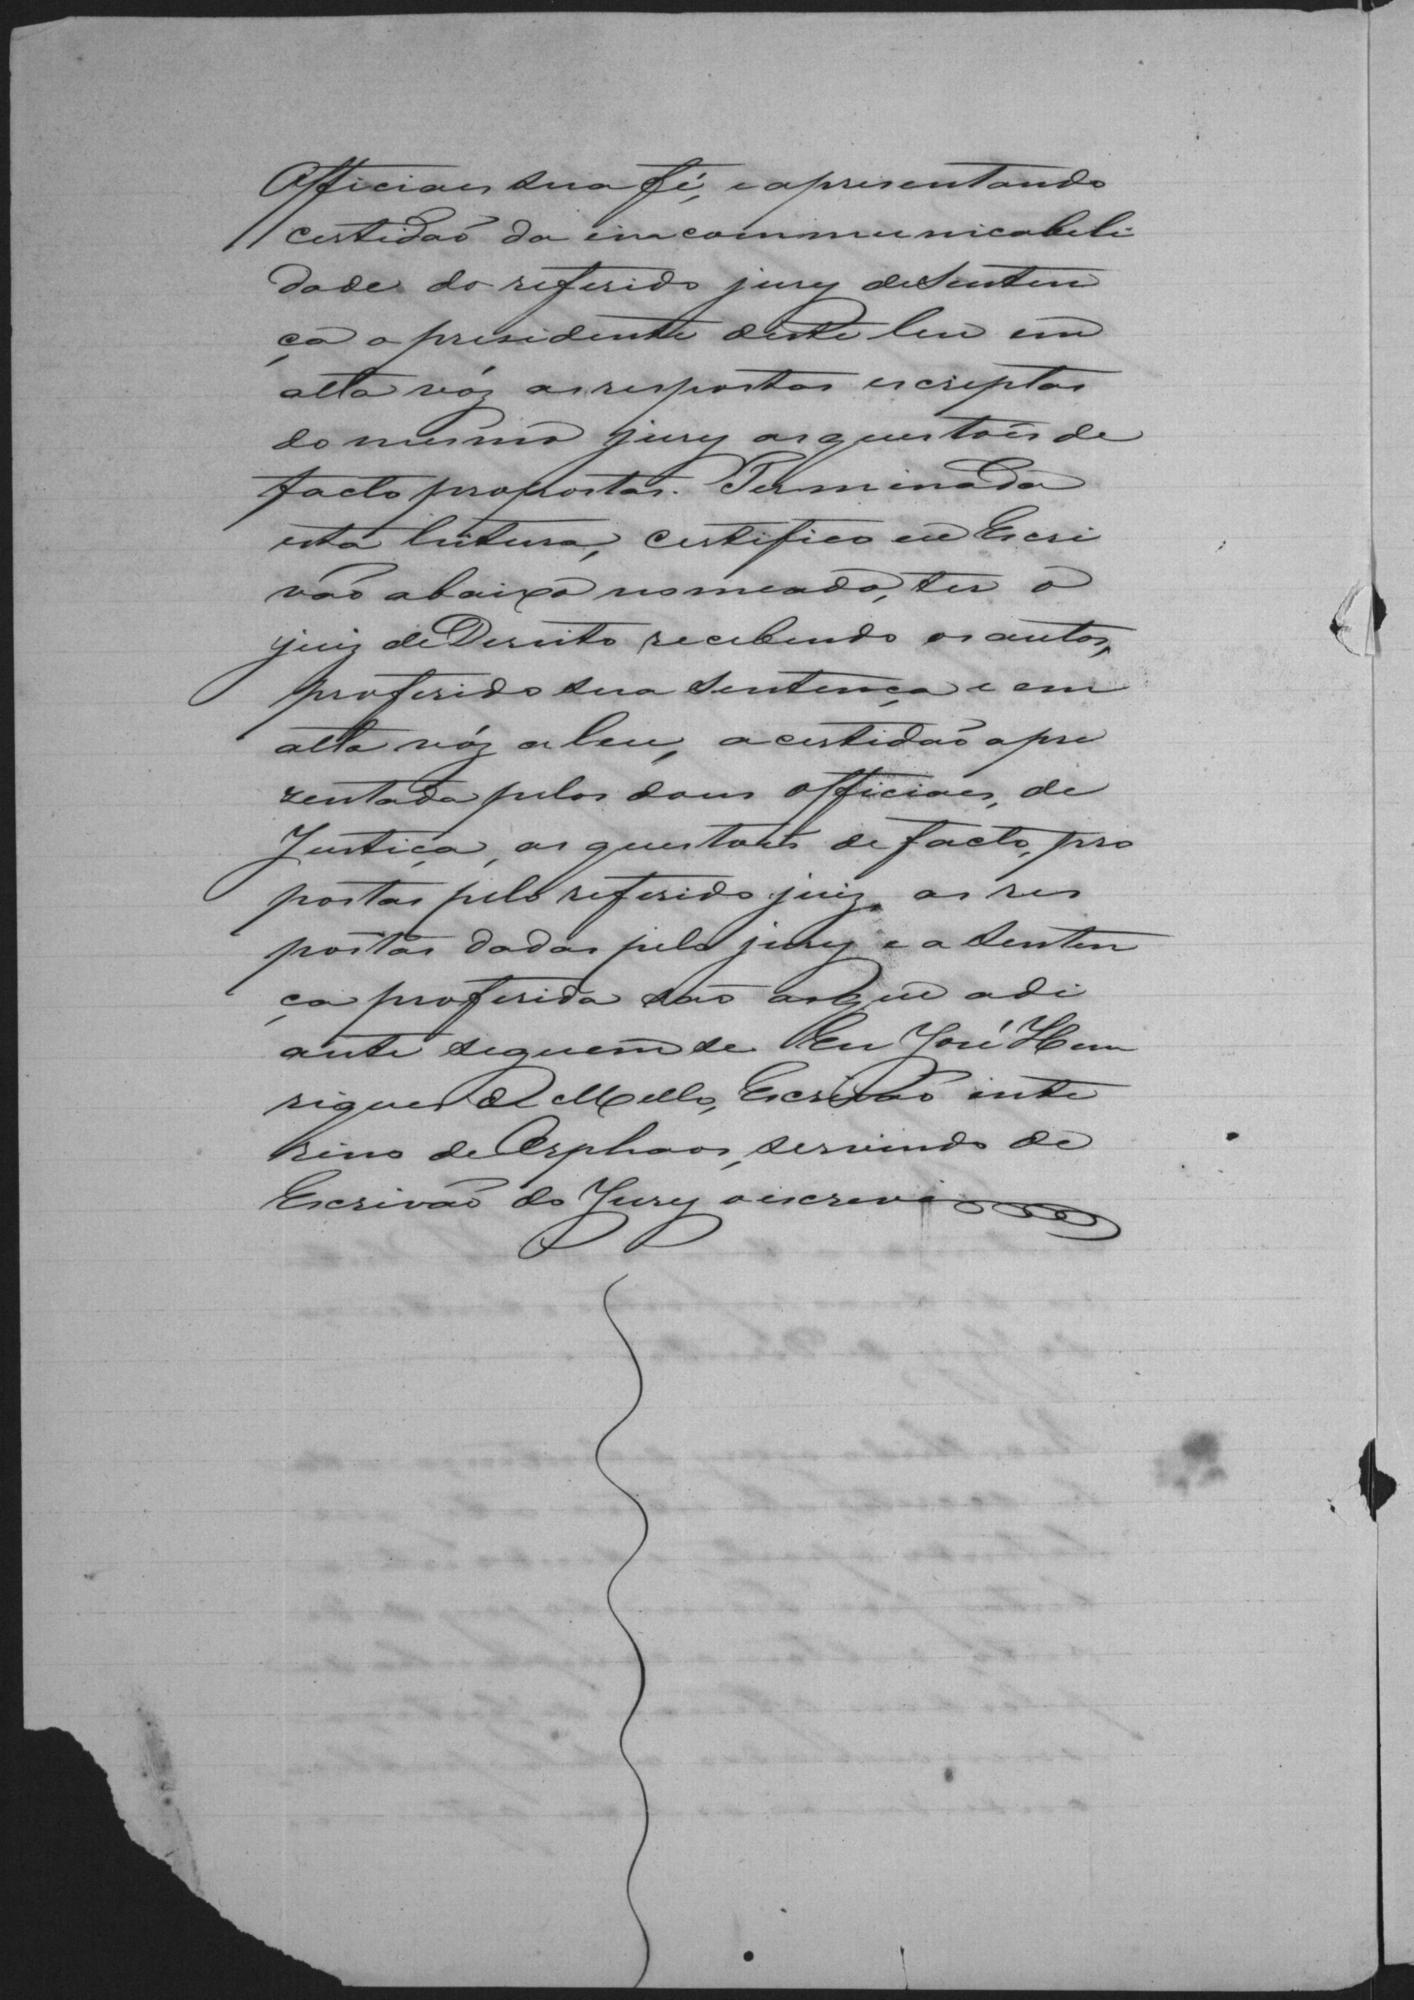 Officiaes sua fé, e apresentando
certidaõ da incommunicabili
dade do referido jury de Senten
ça o presidente deste leu em
alta vóz as respostas escriptas
do mesmo jury as questoẽs de
facto propostas. Terminada
esta leitura, certifico eu Escri
vaõ abaixo nomeado, ter o
juiz de Dereito recebendo os autos,
proferido sua Sentença e em
alta vóz a leu, a certidaõ apre
zentada pelos dous officiaes, de
Justiça, as questoẽs de facto, pro
postas pelo referido juiz, as res
postas dadas pelo jury e a Senten
ça proferida saõ as que adi
ante seguem se Eu José Hen
riques de Mello, Escrivaõ inte
rino de Orphaos, servindo de
Escrivaõ do Jury o escrevi